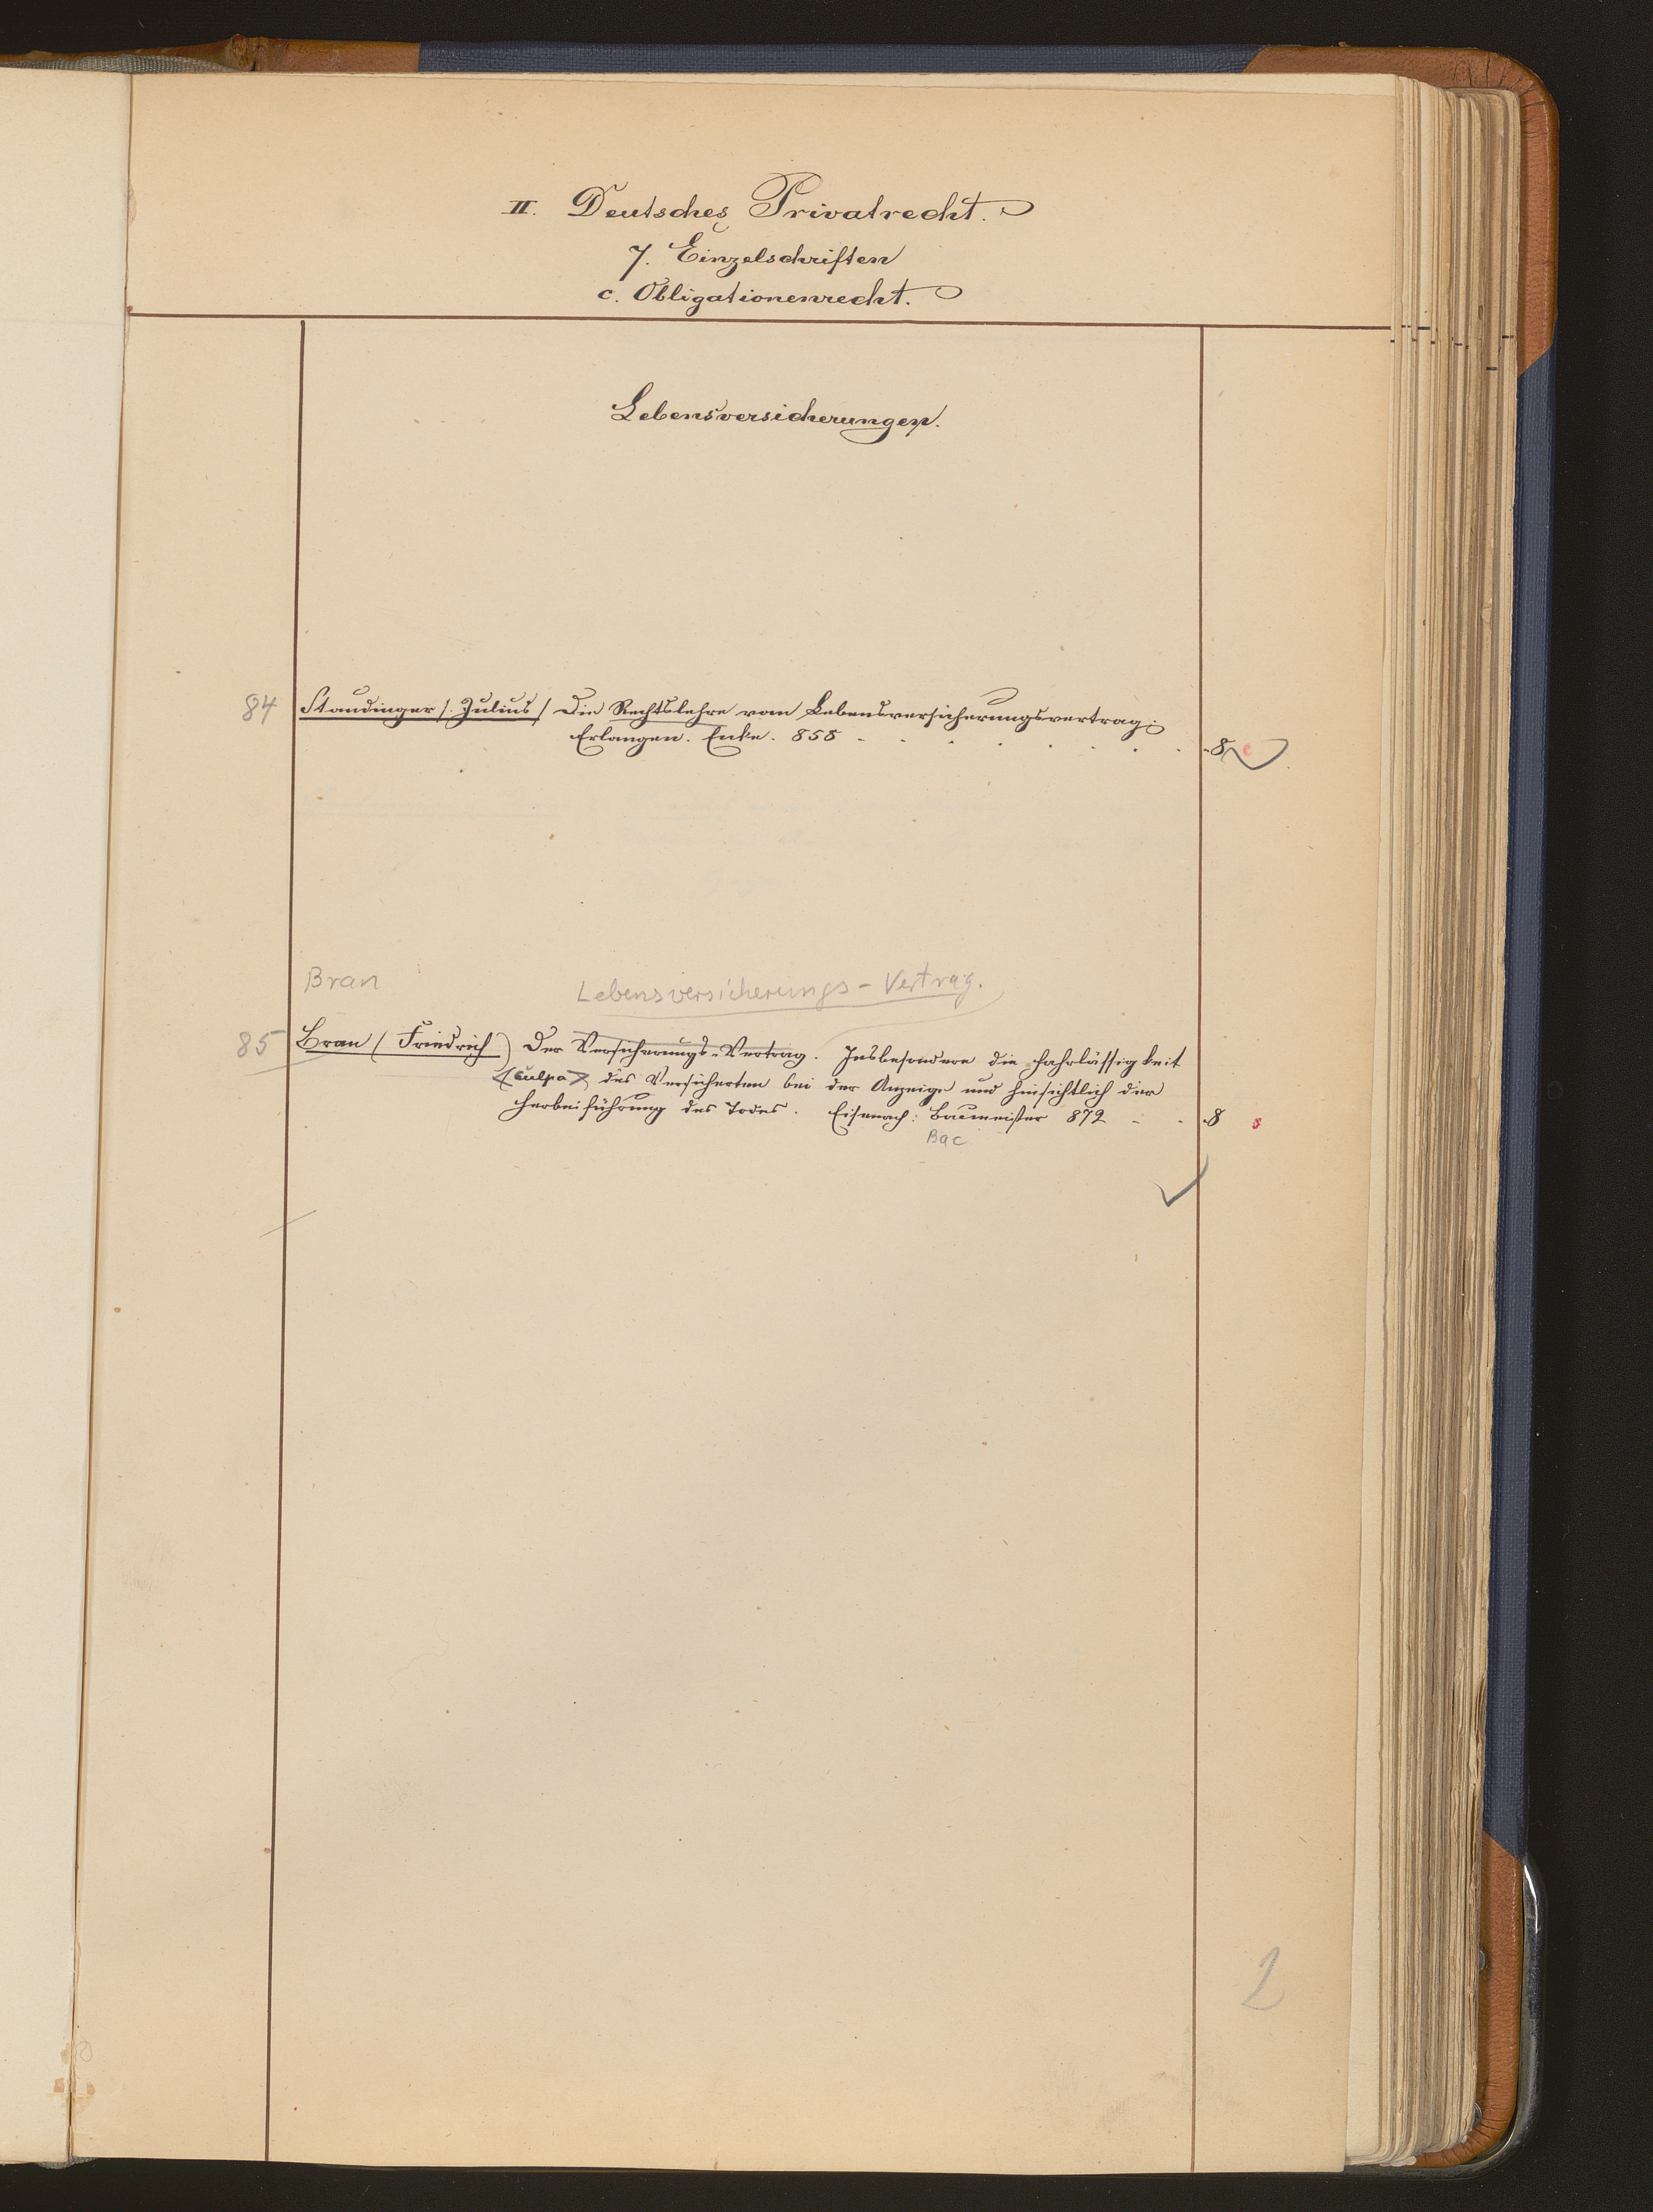 II. Deutsches Privatrecht.
7. Einzelschriften
c. Obligationenrecht.
Lebensversicherungen.
84 Staudinger /. Julius / Die Rechtslehre vom Lebensversicherungsvertrag:
Erlangen. Enke. 858 - . . . . . . . 8 c
Bran Lebensversicherungs-Vertrag.
85 Bran (Friedrich) Der Versicherungs-Vertrag. Insbesondere die Fahrlässigkeit
(culpa) des Versicherten bei der Anzeige und hinsichtlich der
Herbeiführung des Todes. Eisenach: Baumeister 872 - - 8 s
Bac
2